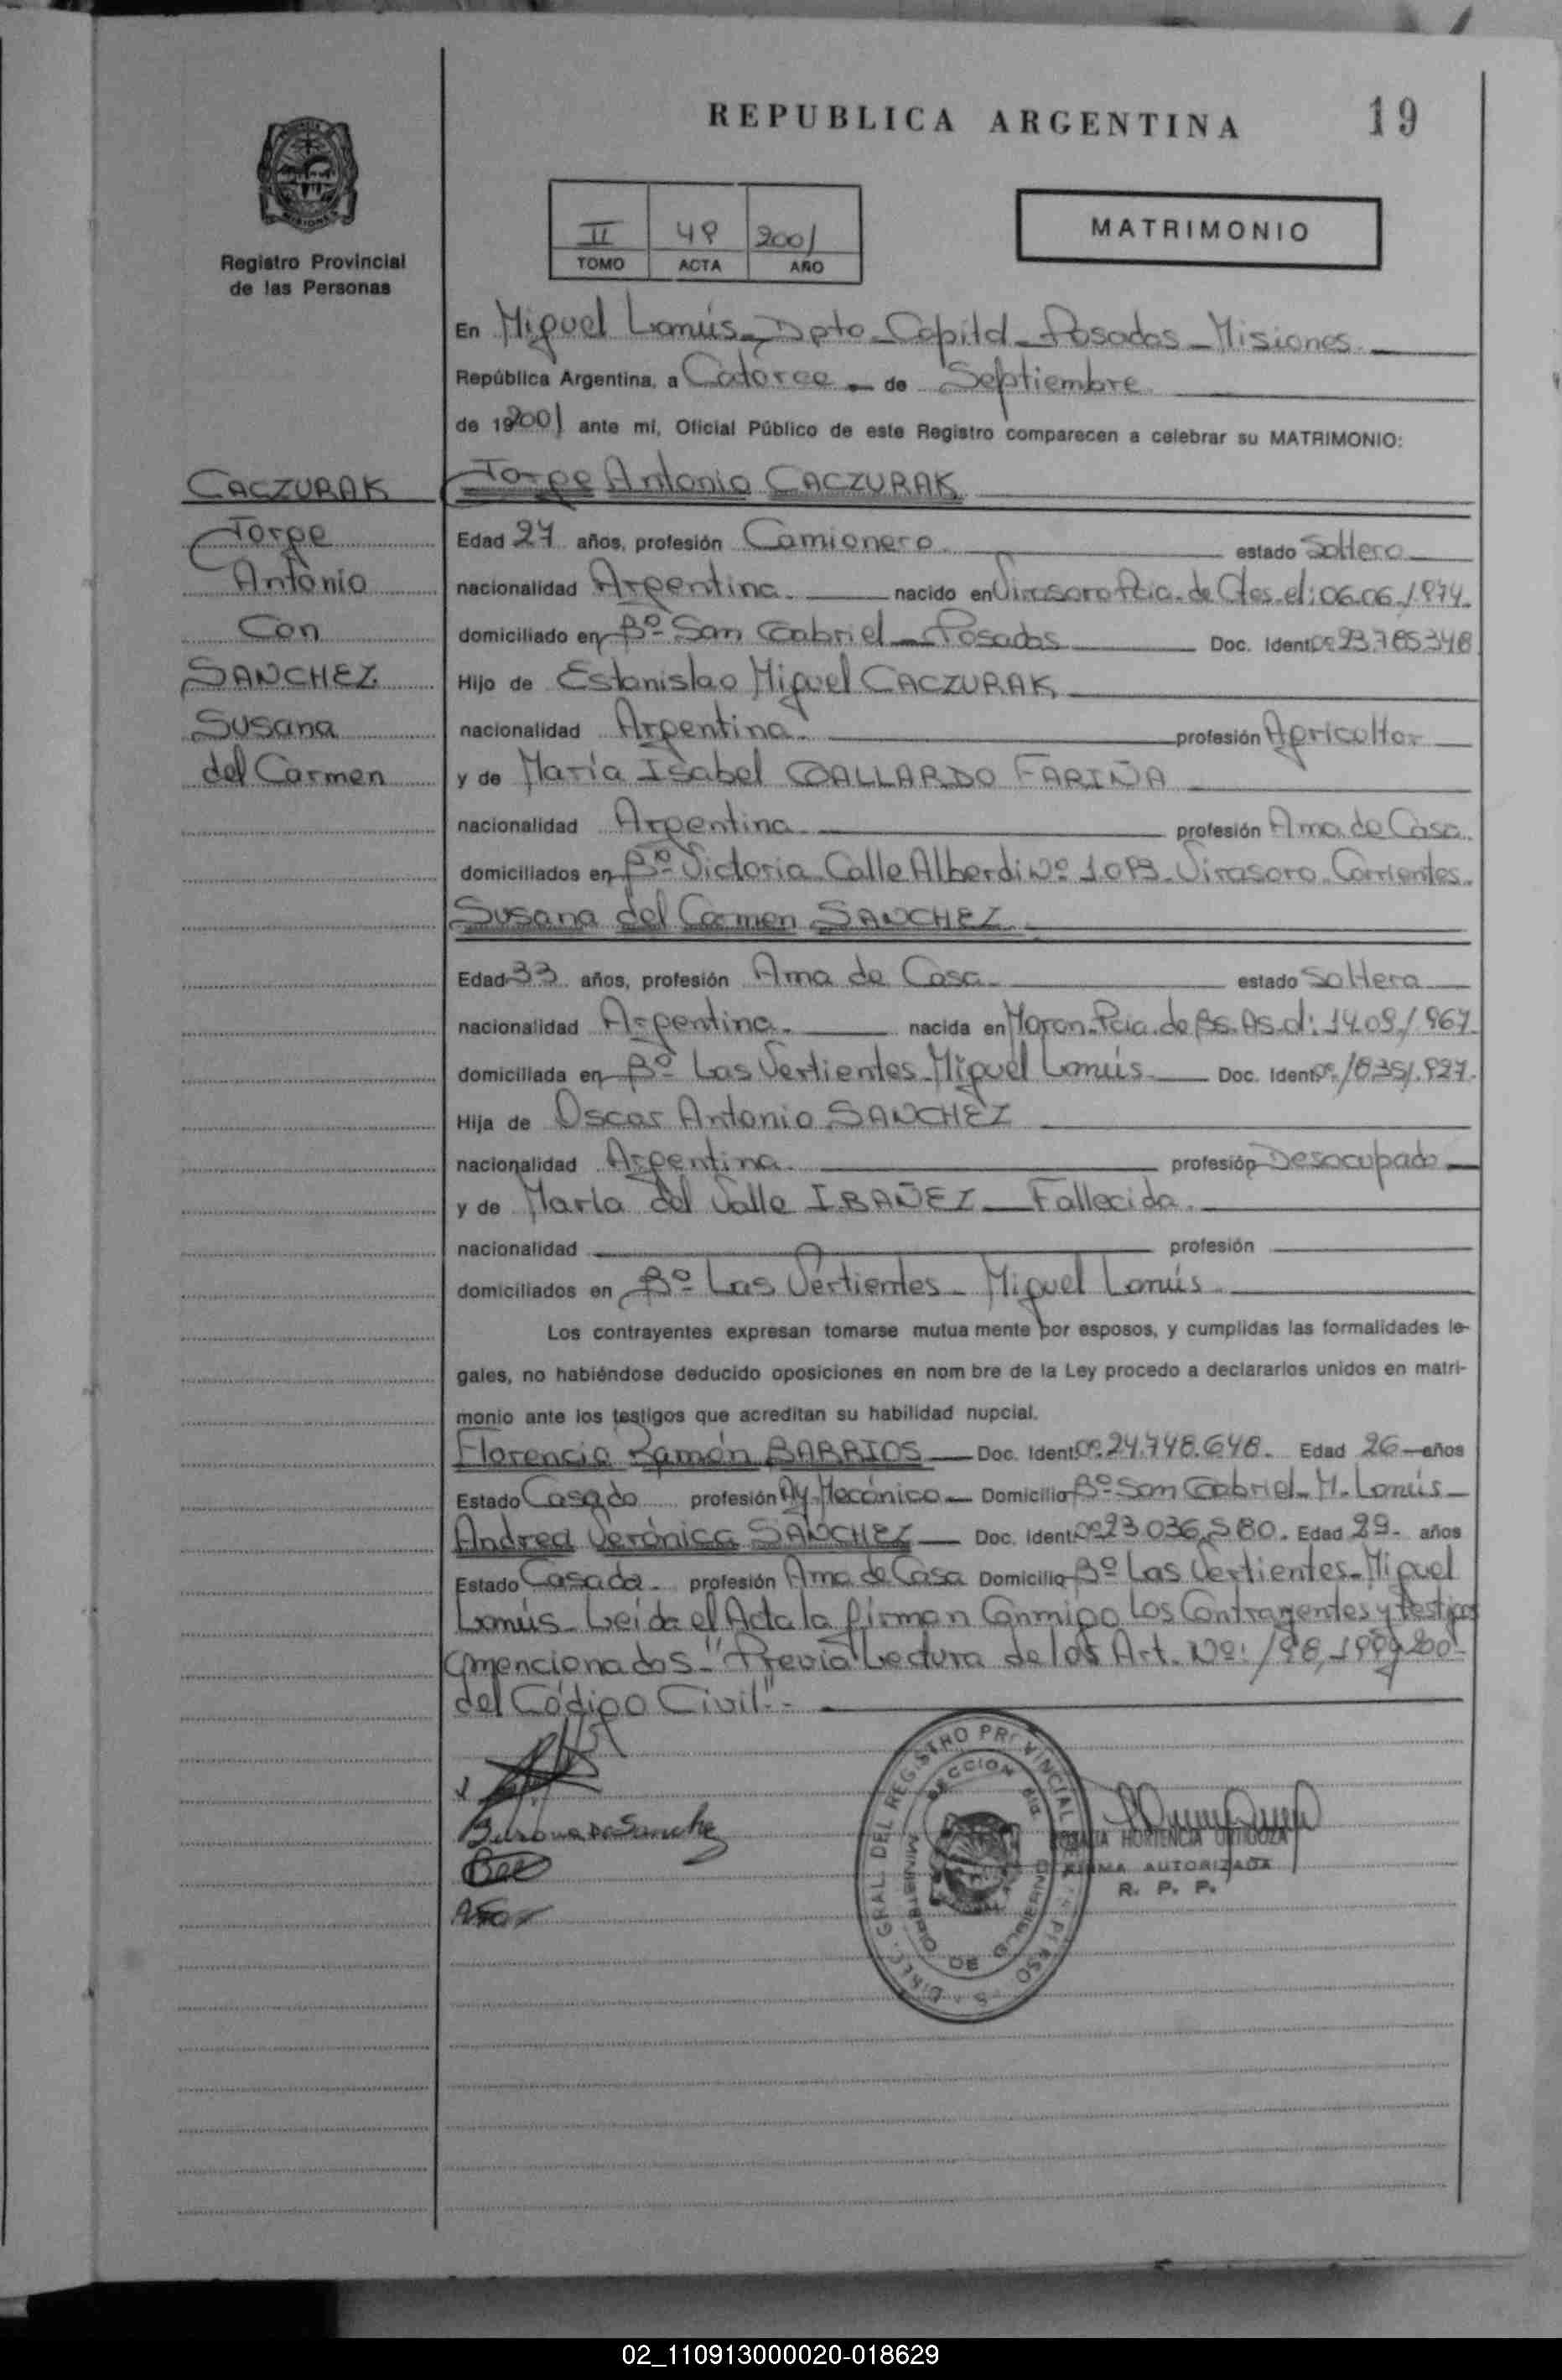 REPUBLICA ARGENTINA
19
Registro Provincial
de las Personas
II 49 2001
TOMO ACTA AÑO
MATRIMONIO
En Miguel Lanús - Dpto - Capital - Posadas - Misiones
República Argentina, a Catorce - de Septiembre
de 192001 ante mí, Oficial Público de este Registro comparecen a celebrar su MATRIMONIO:
CACZURAK
Jorge
Antonio
Con
SANCHEZ
Susana
del Carmen
Jorge Antonio CACZURAK
Edad 27 años, profesión Camionero estado Soltero
nacionalidad Argentina. nacido en Virasoro Pcia. de Ctes. el: 06.06./974.
domiciliado en Bº San Gabriel - Posadas Doc. Ident. 23.785.348
Hijo de Estanislao Miguel CACZURAK
nacionalidad Argentina. profesión Agricultor
y de María Isabel GALLARDO FARIÑA
nacionalidad Argentina profesión Ama de Casa.
domiciliados en Bº Victoria Calle Alberdi Nº Virasoro. Corrientes.
Susana del Carmen SANCHEZ
Edad 33 años, profesión Ama de Casa. estado Soltera
nacionalidad Argentina. nacida en Moron. Pcia. de Bs. As. el: 14.09./967.
domiciliada en Bº Las Vertientes - Miguel Lanús Doc. Ident. /8351.927.
Hija de Oscar Antonio SANCHEZ
nacionalidad Argentina. profesión Desocupado
y de María del Valle IBAÑEZ - Fallecida.
nacionalidad profesión
domiciliados en Bº Las Vertientes - Miguel Lanús
Los contrayentes expresan tomarse mutua mente por esposos, y cumplidas las formalidades le-
gales, no habiéndose deducido oposiciones en nom bre de la Ley procedo a declararlos unidos en matri-
monio ante los testigos que acreditan su habilidad nupcial.
Florencio Ramón BARRIOS Doc. Ident. 24.748.648. Edad 26 años
Estado Casado profesión Ay. Mecánico - Domicilio Bº San Gabriel - M. Lanús
Andrea Verónica SANCHEZ Doc. Ident. 23.036.980. Edad 29 - años
Estado Casada - profesión Ama de Casa Domicilio Bº Las Vertientes - Miguel
Lanús - Leída el Acta la firman Conmigo los Contrayentes y testigos
mencionados - "Previa Lectura de los Art. Nº: /98, 199 y 200 -
del Código Civil" -
DIREC. GRAL. DEL REGISTRO PROVINCIAL
MINISTERIO DE GOBIERNO
HORTENCIA
FIRMA AUTORIZADA
R. P. P.
02_110913000020-018629